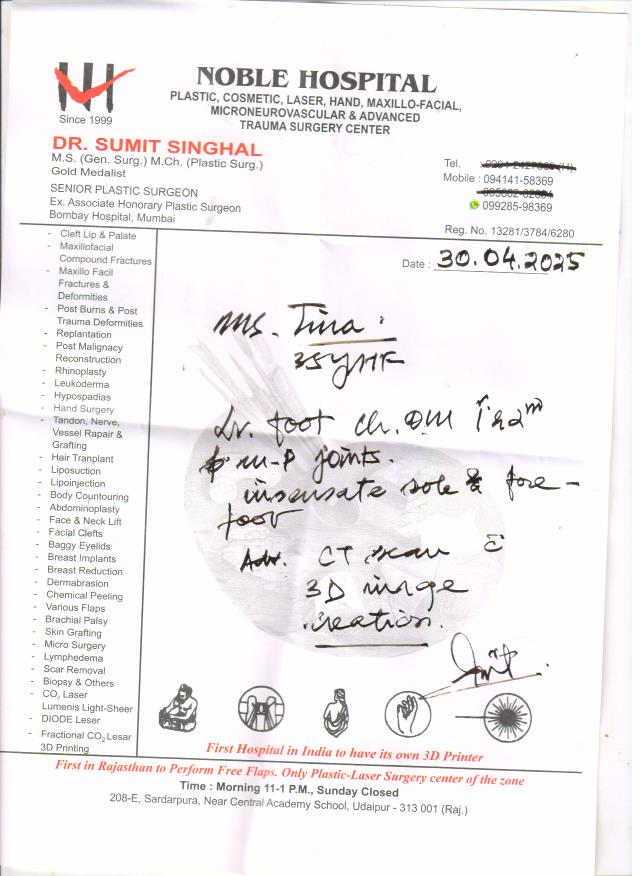 Since 1999
NOBLE HOSPITAL
PLASTIC, COSMETIC, LASER, HAND, MAXILLO-FACIAL,
MICRONEUROVASCULAR & ADVANCED
TRAUMA SURGERY CENTER
DR. SUMIT SINGHAL
M.S. (Gen. Surg.) M.Ch. (Plastic Surg.)
Gold Medalist
SENIOR PLASTIC SURGEON
Ex. Associate Honorary Plastic Surgeon
Bombay Hospital, Mumbai
Tel.
Mobile : 094141-58369
099285-98369
Reg. No. 13281/3784/6280
Date : 30.04.2025
- Cleft Lip & Palate
- Maxillofacial
Compound Fractures
- Maxillo Facil
Fractures &
Deformities
- Post Burns & Post
Trauma Deformities
- Replantation
- Post Malignacy
Reconstruction
- Rhinoplasty
- Leukoderma
- Hypospadias
- Hand Surgery
- Tandon, Nerve,
Vessel Rapair &
Grafting
- Hair Tranplant
- Liposuction
- Lipoinjection
- Body Countouring
- Abdominoplasty
- Face & Neck Lift
- Facial Clefts
- Baggy Eyelids
- Breast Implants
- Breast Reduction
- Dermabrasion
- Chemical Peeling
- Various Flaps
- Brachial Palsy
- Skin Grafting
- Micro Surgery
- Lymphedema
- Scar Removal
- Biopsy & Others
- CO2 Laser
Lumenis Light-Sheer
- DIODE Leser
- Fractional CO2 Lesar
3D Printing
Ms. Tina
35y
foot
M-P joints.
insensate sole & fore-
foot
Adv. CT scan
3D image
creation.
First Hospital in India to have its own 3D Printer
First in Rajasthan to Perform Free Flaps. Only Plastic-Laser Surgery center of the zone
Time : Morning 11-1 P.M., Sunday Closed
208-E, Sardarpura, Near Central Academy School, Udaipur - 313 001 (Raj.)